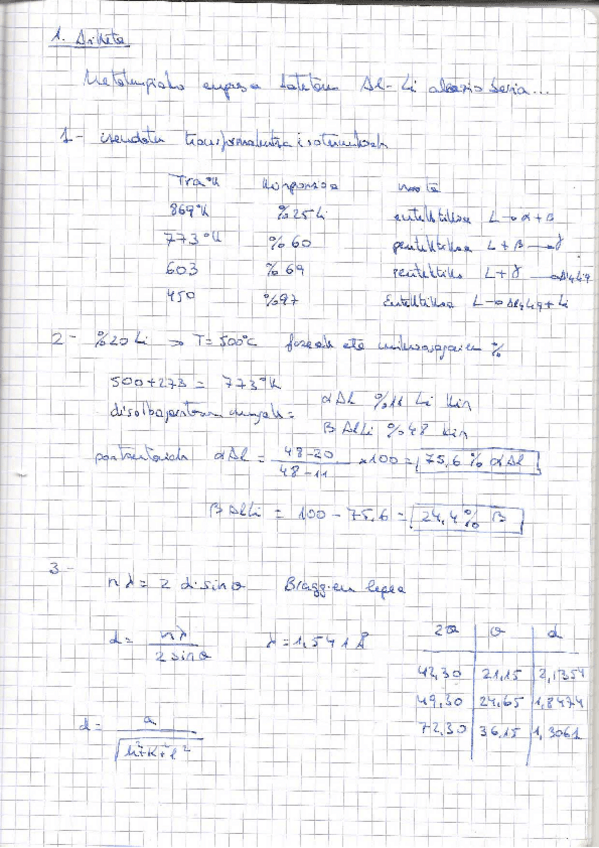 1. Ariketa
Metalurgiako enpresa batetan Al-Li aleazio beria...
1- izendatu transformakuntza isotermikoak
Tra °K konposizioa mota
869°K %25 Li eutektikoa L→α+B
773°K %60 peritektikoa L+B→γ
603 %69 peritektiko L+γ→Al4Li9
450 %97 Eutektikoa L→Al4Li9+Li
2- %20 Li ⇒ T=500°C faseak eta mikroegituren %
500+273 = 773°K
disolbagarritasun mugak = αAl %11 Li kin
B AlLi %48 kin
portzentaiak αAl = 48-20 / 48-11 × 100 = 75,6% αAl
B AlLi = 100 - 75,6 = 24,4% B
3-
nλ = 2 d·sinθ Bragg-en legea
2θ θ d
d = nλ / 2 sinθ λ = 1,541 Å
42,30 21,15 2,1354
49,30 24,65 1,8474
72,30 36,15 1,3061
d = a / √h²+k²+l²